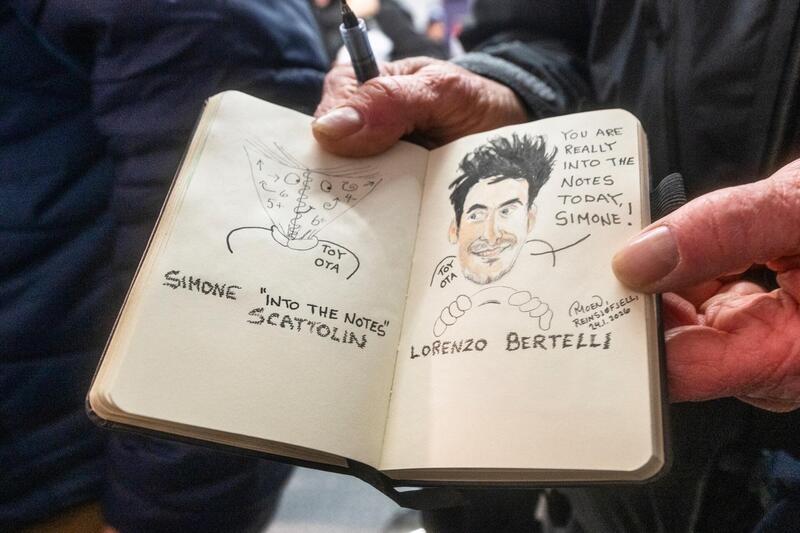 5+
6
4-
6+
TOY
OTA
SIMONE "INTO THE NOTES"
SCATTOLIN
YOU ARE
REALLY
INTO THE
NOTES
TODAY,
SIMONE!
TOY
OTA
MOEN,
REINSJØFJELL,
24.1.2026
LORENZO BERTELLI